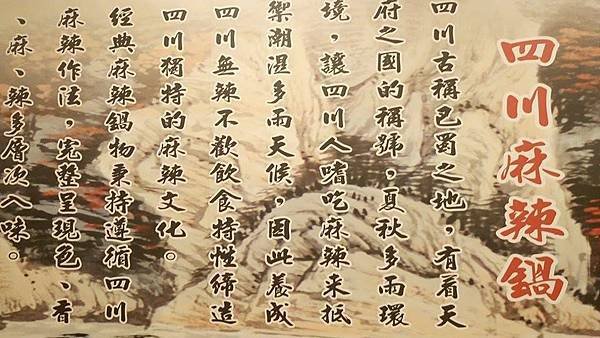 四川麻辣鍋
四川古稱巴蜀之地，有着天
府之國的稱號，夏秋多雨環
境，讓四川人嗜吃麻辣来抵
禦潮溼多雨天候，因此養成
四川無辣不歡飲食特性締造
四川獨特的麻辣文化。
經典麻辣鍋物秉持遵循四川
麻辣作法，完整呈現色、香
、麻、辣多層次入味。